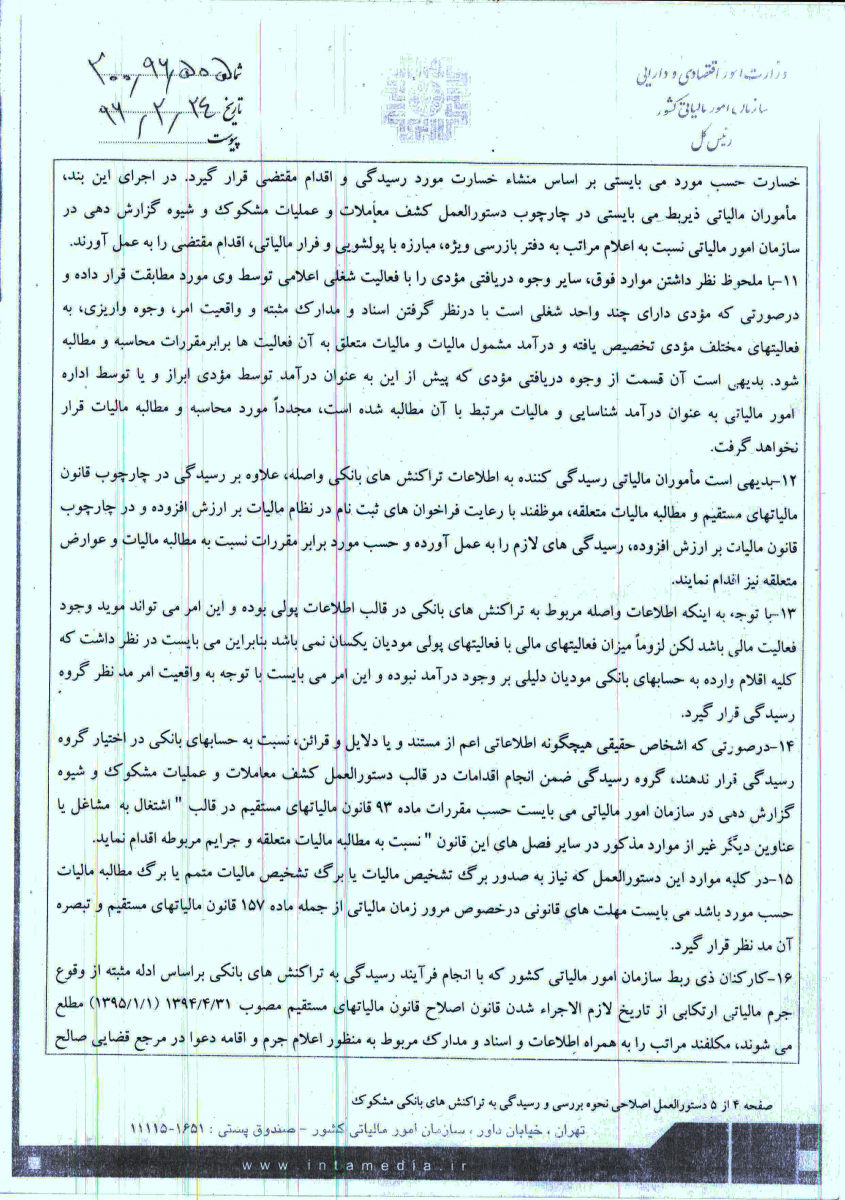 وزارت امور اقتصادی و دارایی
سازمان امور مالیاتی کشور
رئیس کل
شماره ۲۰۰/۹۶/۵۰۵
تاریخ ۹۶/۲/۲۴
پیوست
خسارت حسب مورد می بایستی بر اساس منشاء خسارت مورد رسیدگی و اقدام مقتضی قرار گیرد. در اجرای این بند،
مأموران مالیاتی ذیربط می بایستی در چارچوب دستورالعمل کشف معاملات و عملیات مشکوک و شیوه گزارش دهی در
سازمان امور مالیاتی نسبت به اعلام مراتب به دفتر بازرسی ویژه، مبارزه با پولشویی و فرار مالیاتی، اقدام مقتضی را به عمل آورند.
۱۱-با ملحوظ نظر داشتن موارد فوق، سایر وجوه دریافتی مؤدی را با فعالیت شغلی اعلامی توسط وی مورد مطابقت قرار داده و
درصورتی که مؤدی دارای چند واحد شغلی است با درنظر گرفتن اسناد و مدارک مثبته و واقعیت امر، وجوه واریزی، به
فعالیتهای مختلف مؤدی تخصیص یافته و درآمد مشمول مالیات و مالیات متعلق به آن فعالیت ها برابرمقررات محاسبه و مطالبه
شود. بدیهی است آن قسمت از وجوه دریافتی مؤدی که پیش از این به عنوان درآمد توسط مؤدی ابراز و یا توسط اداره
امور مالیاتی به عنوان درآمد شناسایی و مالیات مرتبط با آن مطالبه شده است، مجدداً مورد محاسبه و مطالبه مالیات قرار
نخواهد گرفت.
۱۲-بدیهی است مأموران مالیاتی رسیدگی کننده به اطلاعات تراکنش های بانکی واصله، علاوه بر رسیدگی در چارچوب قانون
مالیاتهای مستقیم و مطالبه مالیات متعلقه، موظفند با رعایت فراخوان های ثبت نام در نظام مالیات بر ارزش افزوده و در چارچوب
قانون مالیات بر ارزش افزوده، رسیدگی های لازم را به عمل آورده و حسب مورد برابر مقررات نسبت به مطالبه مالیات و عوارض
متعلقه نیز اقدام نمایند.
۱۳-با توجه به اینکه اطلاعات واصله مربوط به تراکنش های بانکی در قالب اطلاعات پولی بوده و این امر می تواند موید وجود
فعالیت مالی باشد لکن لزوماً میزان فعالیتهای مالی با فعالیتهای پولی مودیان یکسان نمی باشد بنابراین می بایست در نظر داشت که
کلیه اقلام وارده به حسابهای بانکی مودیان دلیلی بر وجود درآمد نبوده و این امر می بایست با توجه به واقعیت امر مد نظر گروه
رسیدگی قرار گیرد.
۱۴-درصورتی که اشخاص حقیقی هیچگونه اطلاعاتی اعم از مستند و یا دلایل و قرائن، نسبت به حسابهای بانکی در اختیار گروه
رسیدگی قرار ندهند، گروه رسیدگی ضمن انجام اقدامات در قالب دستورالعمل کشف معاملات و عملیات مشکوک و شیوه
گزارش دهی در سازمان امور مالیاتی می بایست حسب مقررات ماده ۹۳ قانون مالیاتهای مستقیم در قالب " اشتغال به مشاغل یا
عناوین دیگر غیر از موارد مذکور در سایر فصل های این قانون " نسبت به مطالبه مالیات متعلقه و جرایم مربوطه اقدام نماید.
۱۵-در کلیه موارد این دستورالعمل که نیاز به صدور برگ تشخیص مالیات یا برگ تشخیص مالیات متمم یا برگ مطالبه مالیات
حسب مورد باشد می بایست مهلت های قانونی درخصوص مرور زمان مالیاتی از جمله ماده ۱۵۷ قانون مالیاتهای مستقیم و تبصره
آن مد نظر قرار گیرد.
۱۶-کارکنان ذی ربط سازمان امور مالیاتی کشور که با انجام فرآیند رسیدگی به تراکنش های بانکی براساس ادله مثبته از وقوع
جرم مالیاتی ارتکابی از تاریخ لازم الاجراء شدن قانون اصلاح قانون مالیاتهای مستقیم مصوب ۱۳۹۴/۴/۳۱ (۱۳۹۵/۱/۱) مطلع
می شوند، مکلفند مراتب را به همراه اطلاعات و اسناد و مدارک مربوط به منظور اعلام جرم و اقامه دعوا در مرجع قضایی صالح
صفحه ۴ از ۵ دستورالعمل اصلاحی نحوه بررسی و رسیدگی به تراکنش های بانکی مشکوک
تهران ، خیابان داور ، سازمان امور مالیاتی کشور - صندوق پستی : ۱۶۵۱-۱۱۱۱۵
www.intamedia.ir